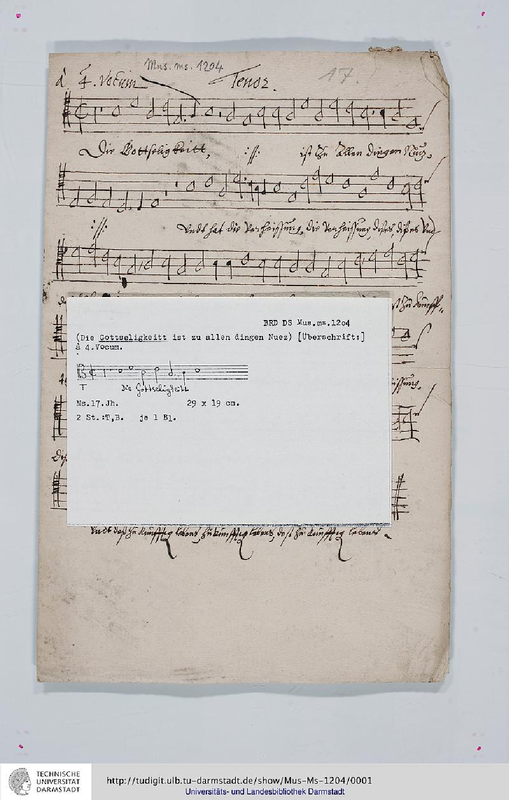 Mus. ms. 1204
à 4. Vocum Tenor. 17.
Die Gottseligkeitt, :||: ist zu allen dingen Nuz,
:||: Undt hat die Verheissung, die Verheissung, dises, dises
BRD DS Mus.ms.1204
(Die Gottseligkeitt ist zu allen dingen Nuez) [Überschrift:]
à 4.Vocum.
T Die Gottseligkeitt
Ms.17.Jh. 29 x 19 cm.
2 St.:T,B. je 1 Bl.
Undt deß zu Künfftig lebens, zu Künfftig lebens, deß zu Künfftig lebens
TECHNISCHE
UNIVERSITÄT
DARMSTADT
http://tudigit.ulb.tu-darmstadt.de/show/Mus-Ms-1204/0001
Universitäts- und Landesbibliothek Darmstadt